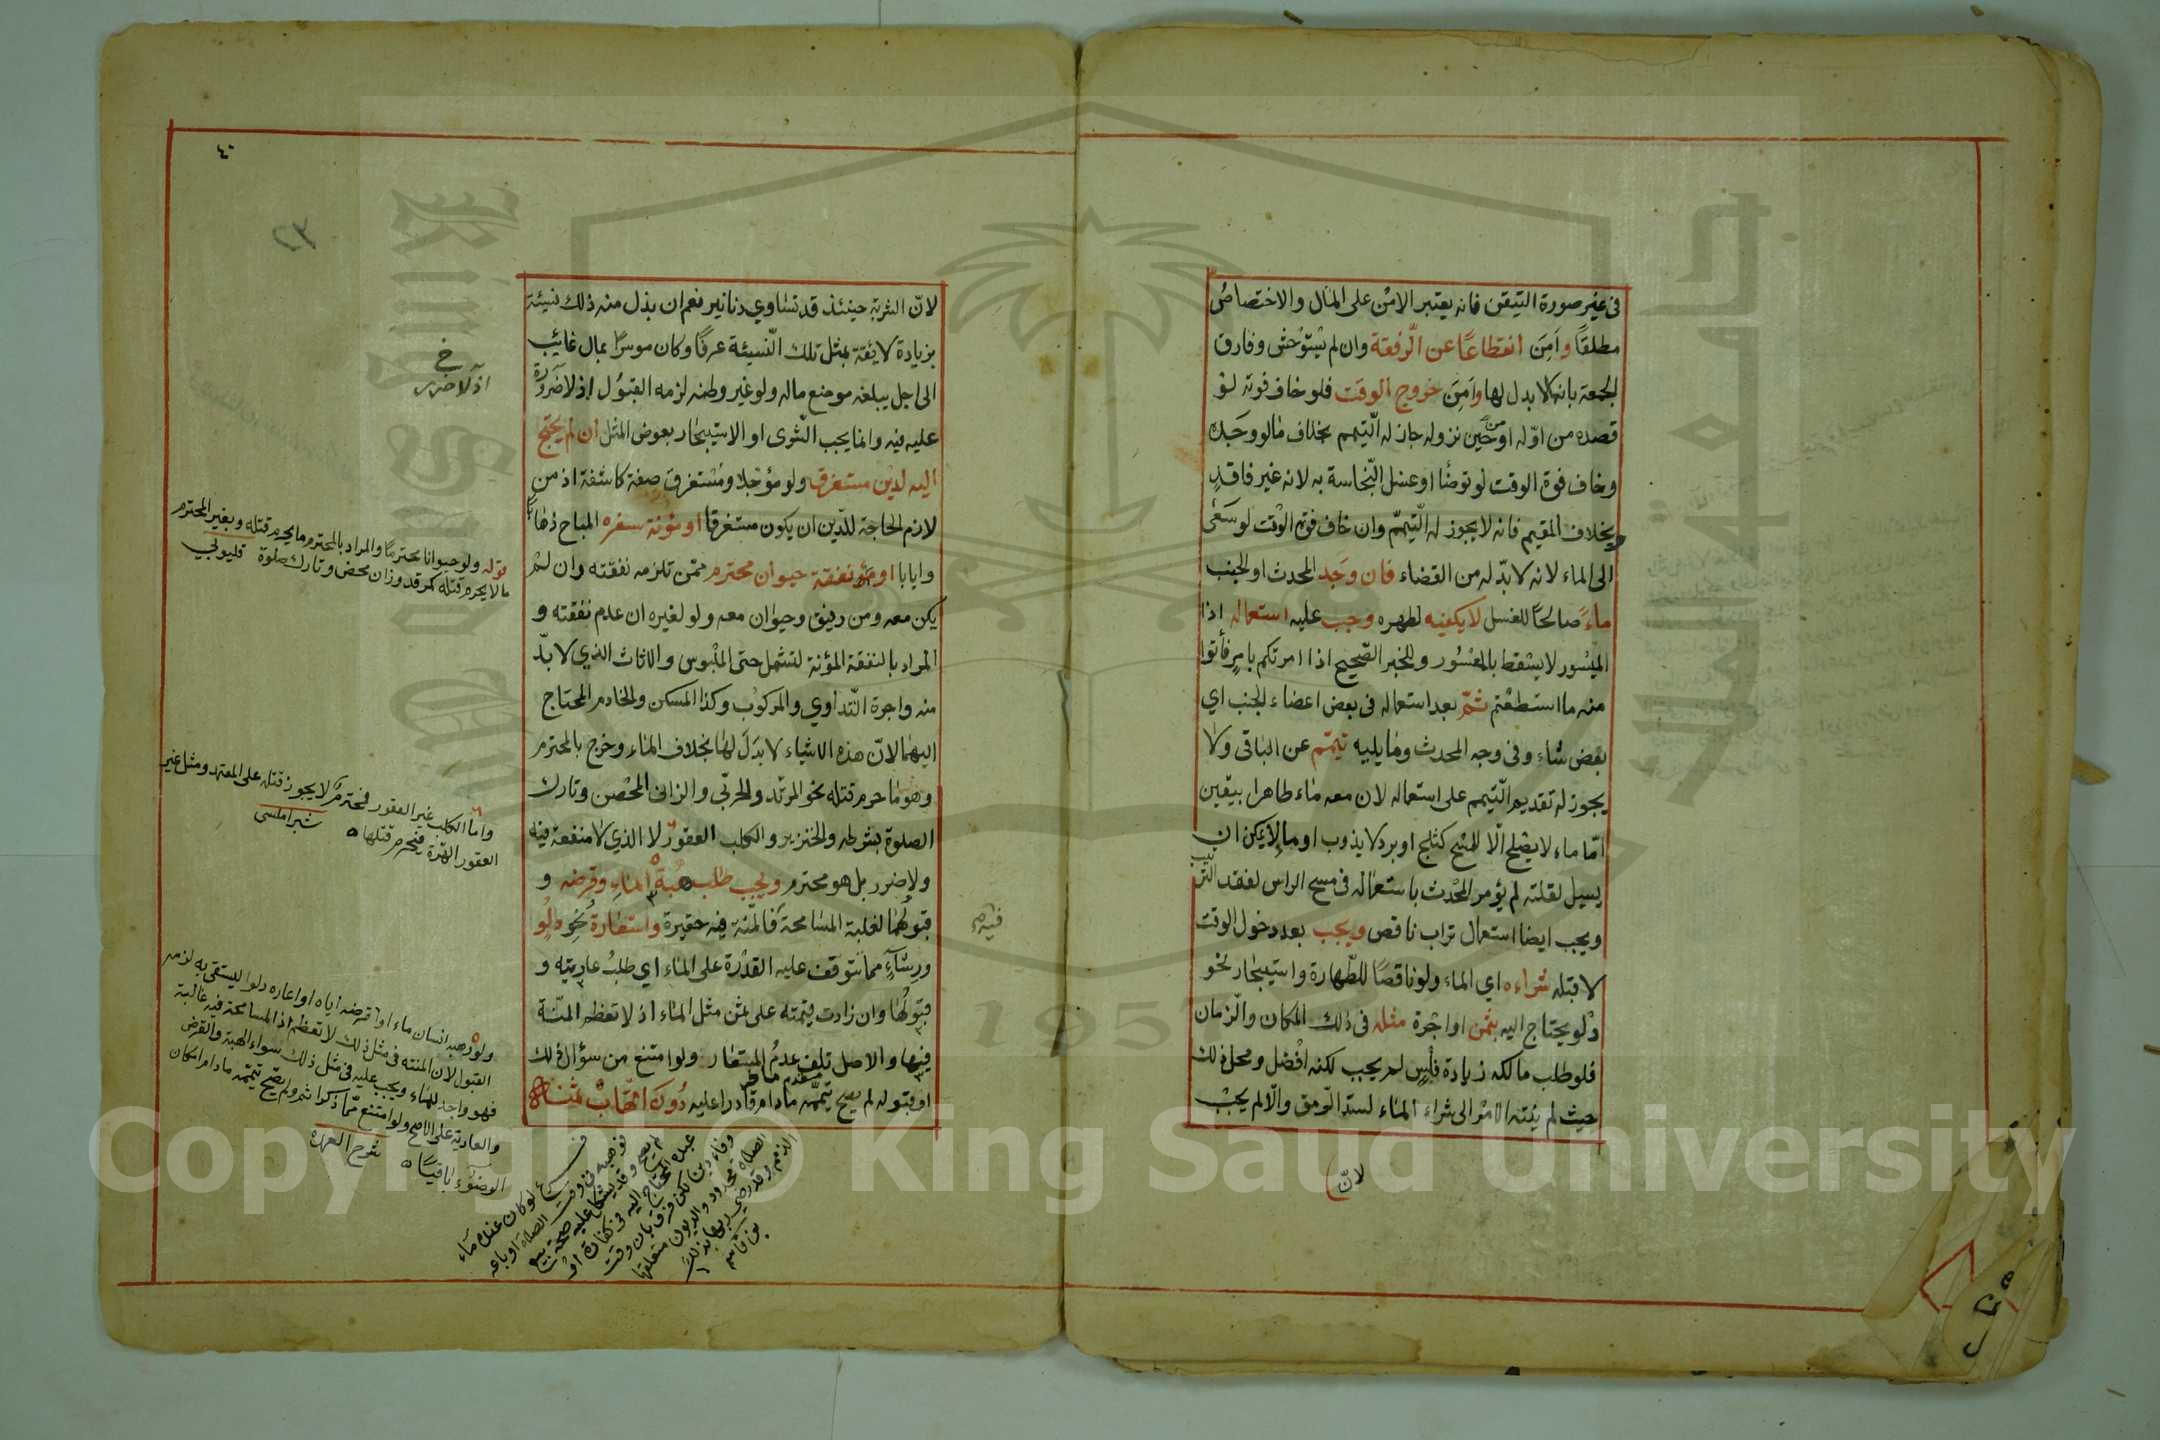 في غير صورة التيقن فانه يعتبر الامن على المال والاختصاص
مطلقا وأمن انقطاعا عن الرفقة وان لم يستوحش وفارق
الجمعة بانها لا بدل لها وأمن خروج الوقت فلو خاف فوته لو
قصده من اوله او من حين نزوله جاز له التيمم بخلاف ما لو وجده
وخاف فوة الوقت لو توضأ او غسل النجاسة به لانه غير فاقد
وبخلاف المقيم فانه لا يجوز له التيمم وان خاف فوت الوقت لو سعى
الى الماء لانه لا بد له من القضاء فان وجد المحدث او الجنب
ماء صالحا للغسل لا يكفيه لطهره وجب عليه استعماله اذا
الميسور لا يسقط بالمعسور وللخبر الصحيح اذا امرتكم بامر فأتوا
منه ما استطعتم ثم بعد استعماله في بعض اعضاء الجنب اي
بعض شاء وفي وجه المحدث وما يليه تيمم عن الباقي ولا
يجوز له تقديم التيمم على استعماله لان معه ماء طاهرا بيقين
امّا ماء لا يصلح الا للمسح كثلج او برد لا يذوب او ما لا يمكن ان
يسيل لقلته لم يؤمر المحدث باستعماله في مسح الراس لفقد الترتيب
ويجب ايضا استعمال تراب ناقص ويجب بعد دخول الوقت
لا قبله شراءه اي الماء ولو ناقصا للطهارة واستيجار نحو
دلو يحتاج اليه بثمن او اجرة مثله في ذلك المكان والزمان
فلو طلب مالكه زيادة فلس لم يجب لكنه افضل ومحل ذلك
حيث لم ينته الامر الى شراء الماء لسد الرمق والا لم يجب
لان
٤٠
٢٣
لان الشربة حينئذ قد تساوي دنانير نعم ان بذل منه ذلك نسيئة
بزيادة لايقة بمثل تلك النسيئة عرفا وكان موسرا بمال غائب
الى اجل يبلغه موضع ماله ولو غير وطنه لزمه القبول اذ لا ضرورة
عليه فيه وانما يجب الشرى او الاستيجار بعوض المثل ان لم يحتج
اليه لدين مستغرق ولو مؤجلا ومستغرق صفة كاشفة اذ من
لازم الحاجة للدين ان يكون مستغرقا او مؤنة سفره المباح ذهابا
وايابا او نفقة حيوان محترم ممن تلزمه نفقته وان لم
يكن معه ومن رفيق وحيوان معه ولو لغيره ان عدم نفقته و
المراد بالنفقة المؤنة لتشمل حتى الملبوس والاثاث الذي لا بد
منه واجرة التداوي والمركوب وكذا المسكن والخادم المحتاج
اليهما لان هذه الاشياء لا بدل لها بخلاف الماء وخرج بالمحترم
وهو ما حرم قتله نحو المرتد والحربي والزاني المحصن وتارك
الصلوة بشرطه والخنزير والكلب العقور لا الذي لا منفعة فيه
ولا ضرر بل هو محترم ويجب طلب هبة الماء وقرضه و
قبولهما لغلبة المسامحة فالمنة فيه حقيرة واستعارة نحو دلو
ورشاء مما تتوقف عليه القدرة على الماء اي طلب عاريته و
قبولها وان زادت قيمته على ثمن مثل الماء اذ لا تعظم المنة
فيها والاصل تلف عدم المستعار ولو امتنع من سؤال ذلك
او قبوله لم يصح تيممه ما دام قادرا عليه دون اتهاب ثمنه
خ
اذ لا ضرر
قوله ولو حيوانا محترما والمراد بالمحترم ما يحرم قتله وبغير المحترم
ما لا يحرم قتله كمرتد وزان محصن وتارك صلوة قليوبي
واما الكلب غير العقور فمحترم لا يجوز قتله على المعتمد ومثل غير
العقور الهرة فيحرم قتلها شبراملسي
ولو وهبه انسان ماء او اقرضه اياه او اعاره دلوا ليستقي به لزمه
القبول لان المنة في مثل ذلك لا تعظم اذ المسامحة فيه غالبة
فهو واجد للماء ويجب عليه في مثل ذلك سواء الهبة والقرض
والعارية على الاصح ولو امتنع مما ذكر اثم ولم يصح تيممه ما دام امكان
الوضوء باقيا شرح العمدة
فرع لو كان عنده ماء
فوهبه في وقت الصلاة او باعه
لم يصح وقد يشكل عليه صحة بيع
عبده المحتاج اليه في كفارة او
وفاء دين لكن فرق بان وقت
الصلاة محدود والديون متعلقها
الذمم وقد رضي ربها بذلك
بن قاسم
Copyright © King Saud University
1957